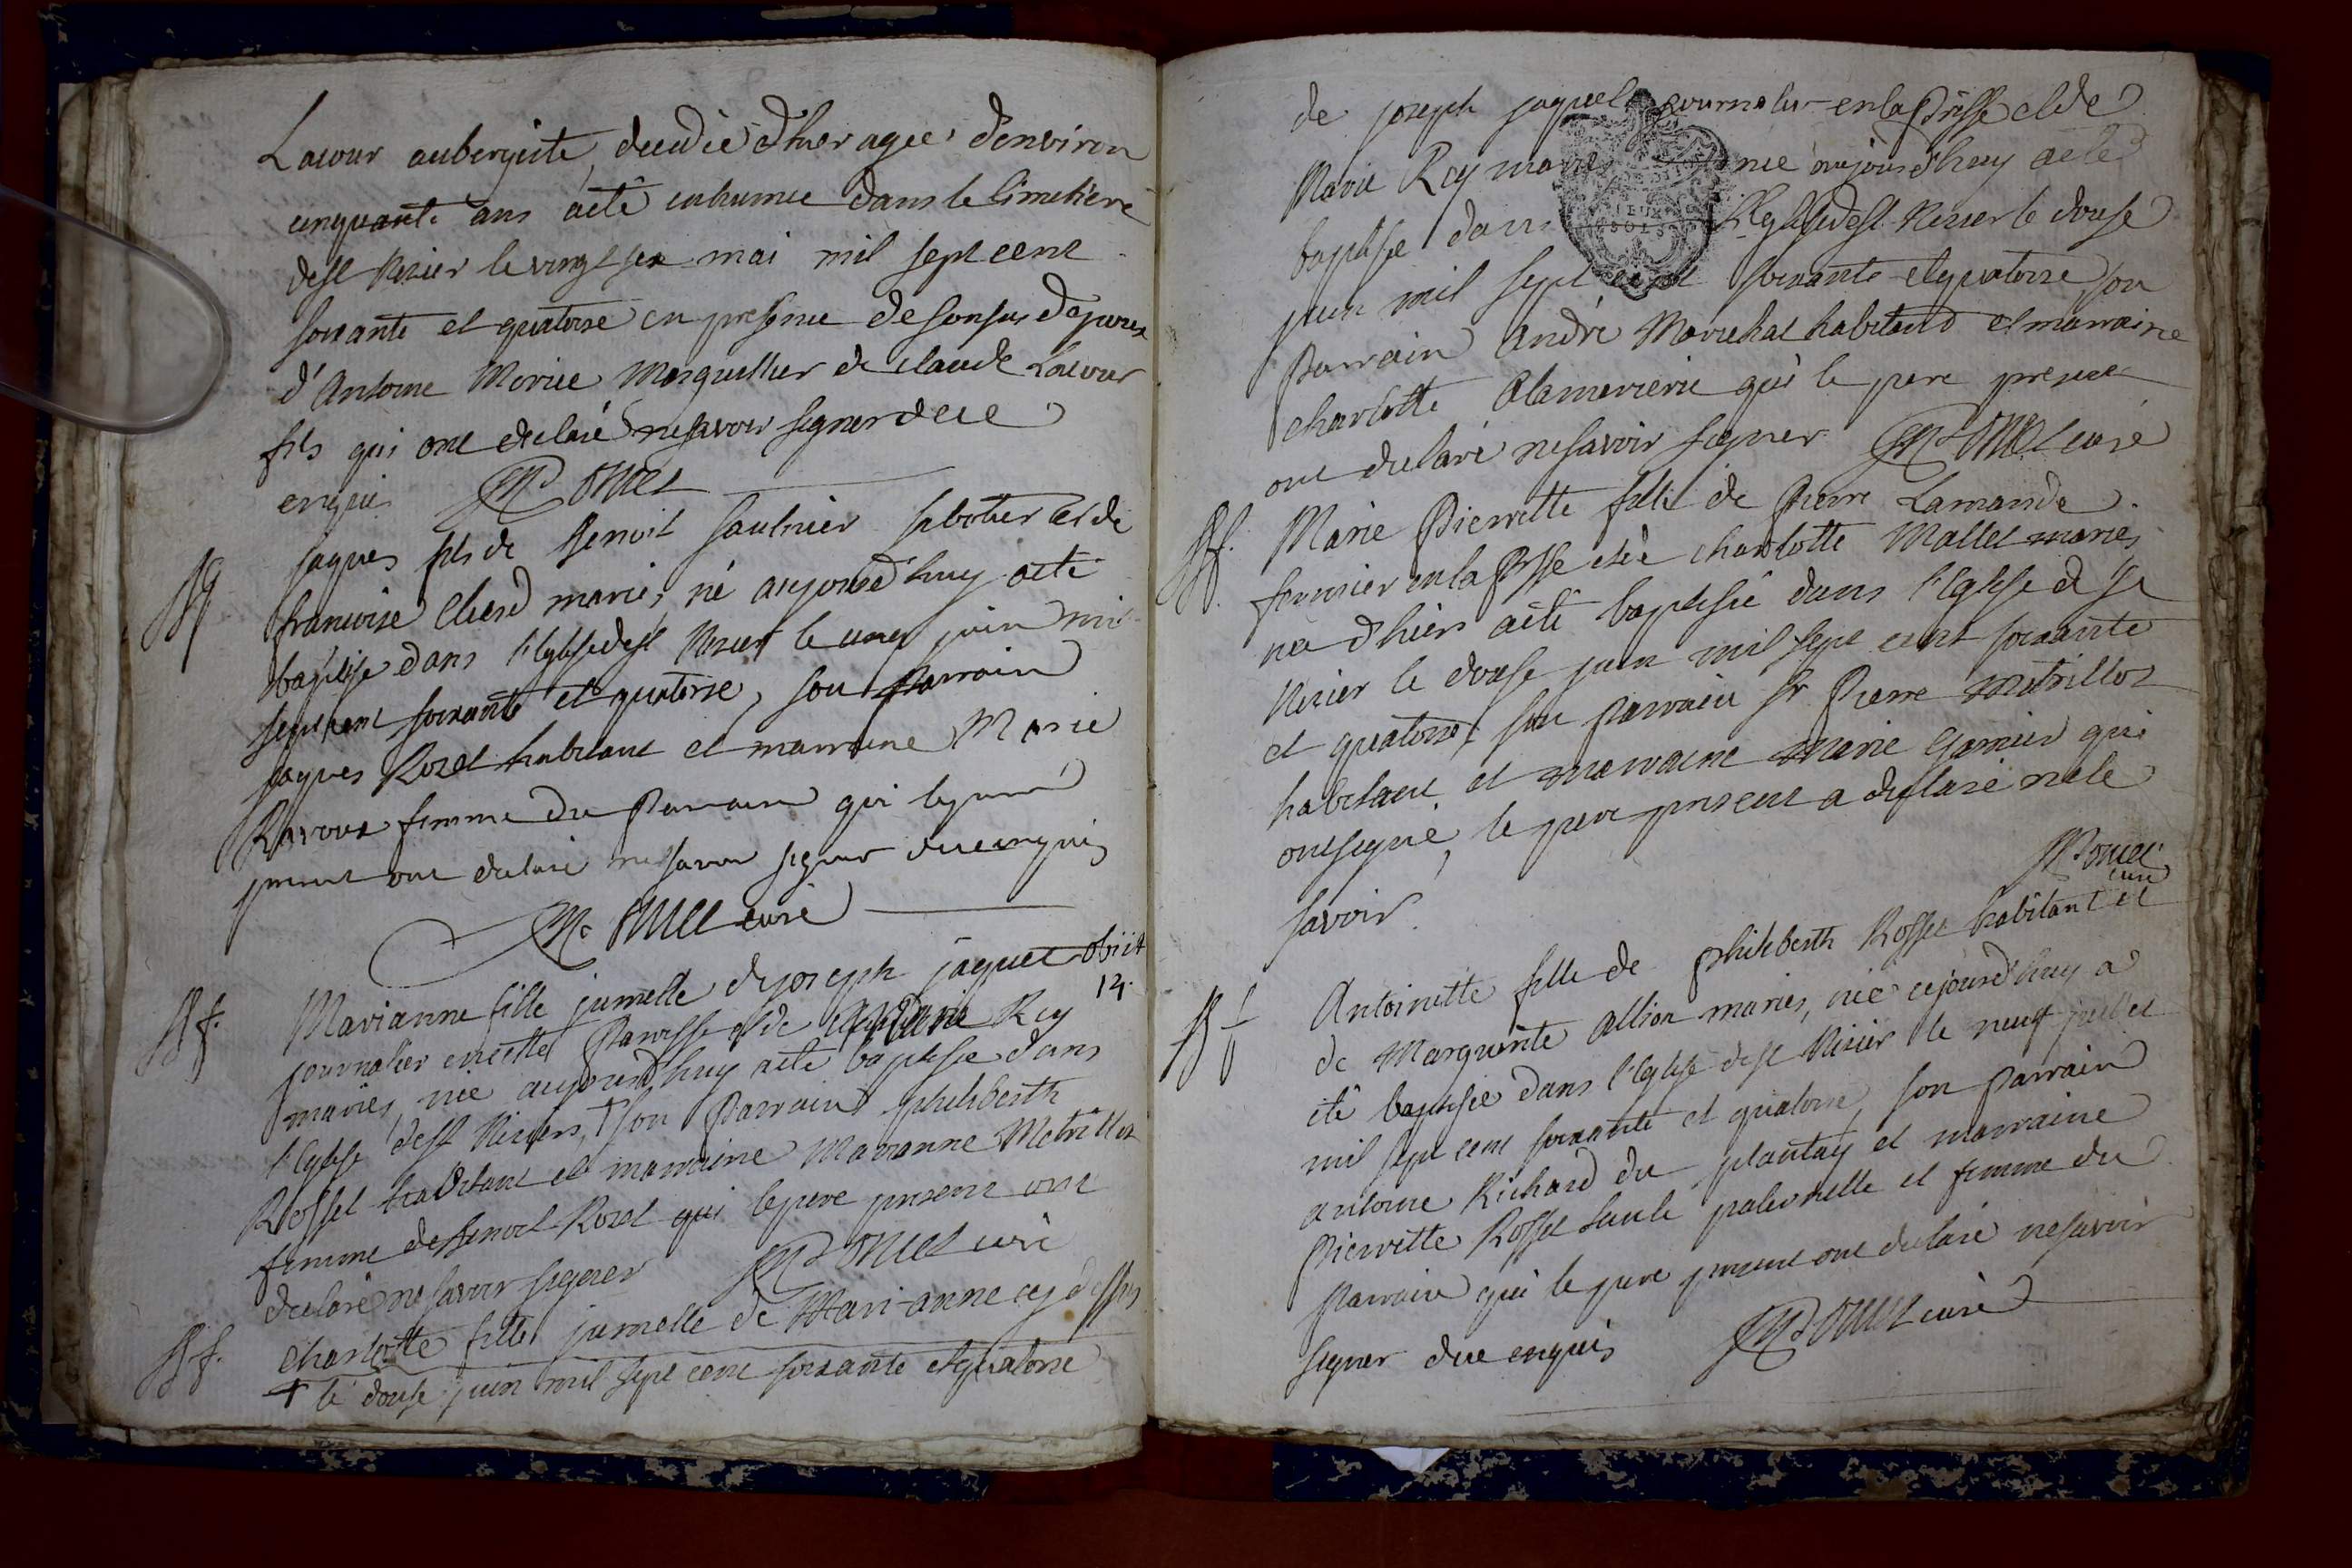 Lacour aubergiste, decedée d'hier agée d'environ
cinquante ans a été inhumée dans le Cimetiere
de st Nizier le vingt six mai mil sept cent
soixante et quatorze en presence de
d'Antoine Morice Marguillier de claude Lacour
fils qui ont declaré ne savoir signer de ce
enquis
Jaques fils de Benoit Saulnier sabotier et de
francoise mariés, né aujourd'huy a été
baptisé dans l'Eglise de st Nizier le juin mil
sept cent soixante et quatorse, son Parrain
Jaques Rozet habitant et marraine Marie
Ravoux femme du Parrain qui le pere
present ont declaré ne savoir signer de ce enquis
curé
obiit
14.
Marianne fille jumelle de joseph jaquet
journalier en cette Paroisse et de Marie Rey
mariés, née aujourd'huy a été baptisée dans
l'Eglise de st Niziers, + son Parrain philiberth
Rosset habitant et marraine Marianne Metrillot
femme de Benoit Rozet qui le pere present ont
declaré ne savoir signer curé
charlotte fille jumelle de Mari-anne cy dessus
+ le douse juin mil sept cent soixante et quatorse
de joseph jaquet journalier en la Prsse et de
Marie Rey mariés née aujourd'huy a été
baptisée dans l'Eglise de st Nizier le douse
juin mil sept cent soixante et quatorze son
Parrain André Marechal habitand et marraine
charlotte qui le pere present
ont declaré ne savoir signer curé
Marie Pierrette fille de Pierre Lamande
fermier en la Prsse et de charlotte Mallet mariés
née d'hier a été baptisée dans l'Eglise de st
Nizier le douse juin mil sept cent soixante
et quatorse, son parrain sr Pierre Metrillot
habitant et marraine Marie Garnier qui
ont signé, le pere present a declaré ne le
savoir
curé
Antoinette fille de philiberth Rosset habitant et
de Marguerite Allion mariés, née cejourd'huy a
été baptisée dans l'Eglise de st Nizier le neuf juillet
mil sept cent soixante et quatorse, son parrain
antoine Richard du plantay et marraine
Pierrette Rosset tante paternelle et femme du
Parrain qui le pere present ont declaré ne savoir
signer de ce enquis curé